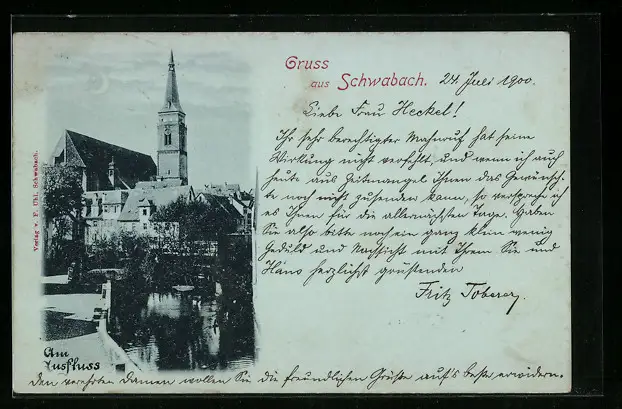 Gruss
aus Schwabach.
24. Juli 1900.
Liebe Frau Heckel!
Ihr sehr berechtigter Mahnruf hat seine
Wirkung nicht verfehlt, und wenn ich auch
heute aus Zeitmangel Ihnen das Gewünsch-
te noch nicht zusenden kann, so verspreche ich
es Ihnen für die allernächsten Tage. Haben
Sie also bitte noch ein ganz klein wenig
Geduld und Nachsicht mit Ihrem Sie und
Häns herzlichst grüssenden
Fritz
Verlag v. F. Uhl, Schwabach.
Am
Ausfluss
Den verehrten Damen wollen Sie die freundlichen Grüsse auf's beste erwidern.